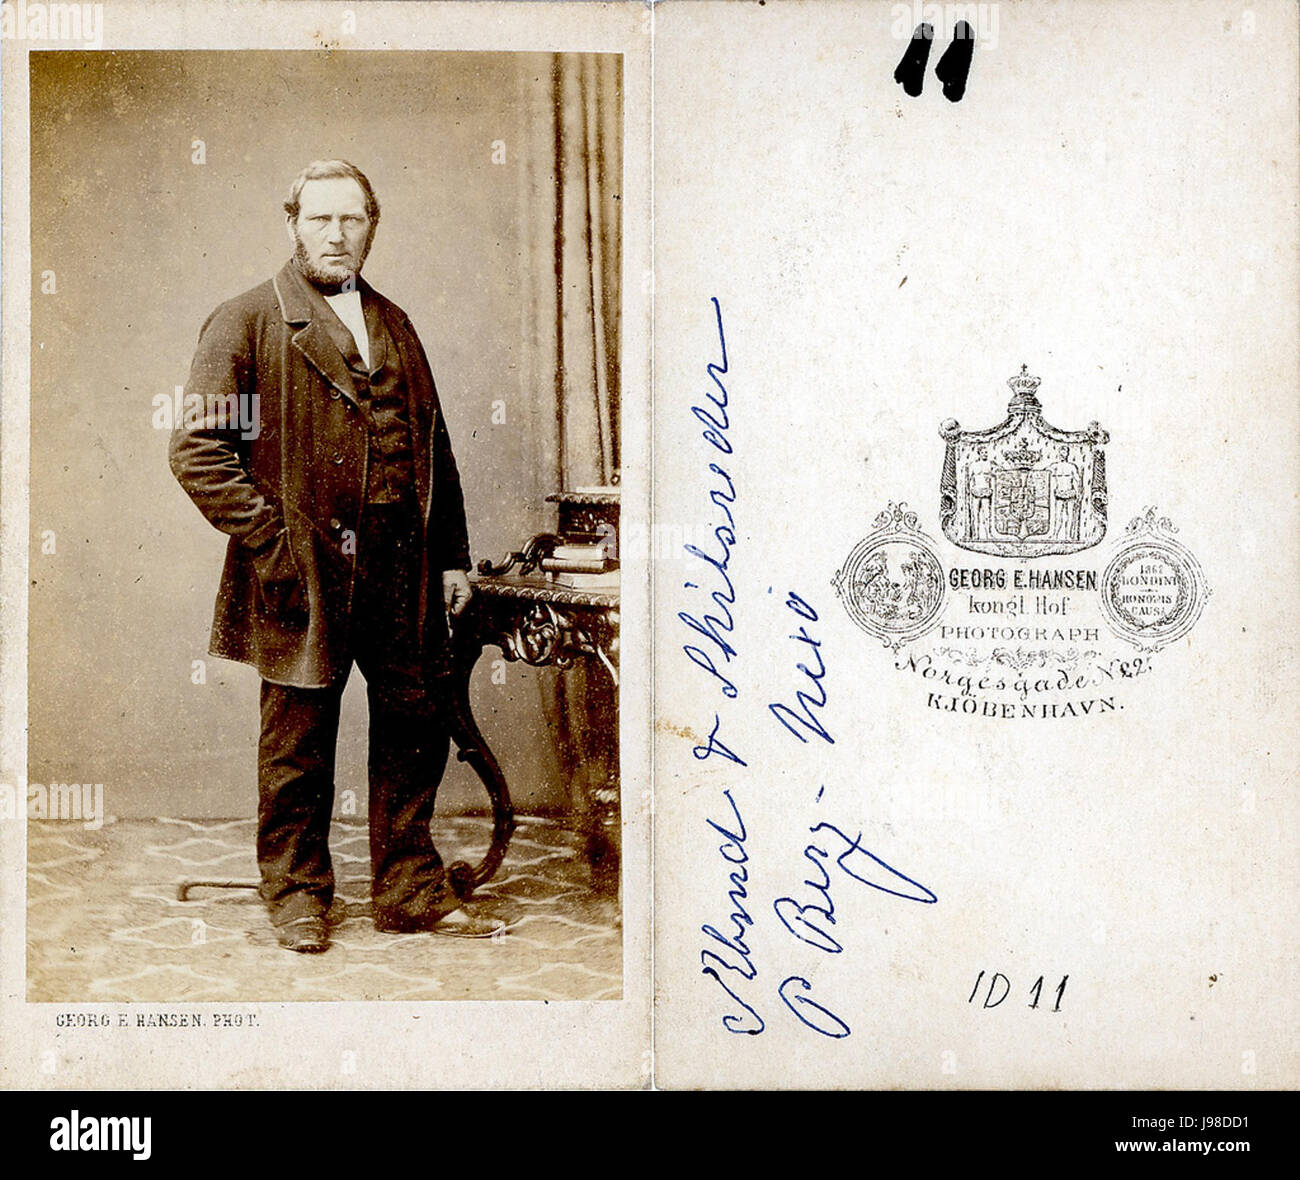 GEORG E HANSEN. PHOT.
11
Mbmd & Skibsreder
P Berg - Nexö
1862
LONDINI
HONORIS
CAUSA
GEORG E. HANSEN
kongl. Hof
PHOTOGRAPH
Norgesgade No 2.
KJÖBENHAVN.
ID 11
a alamy stock photo
alamy
Image ID: J98DD1
www.alamy.com